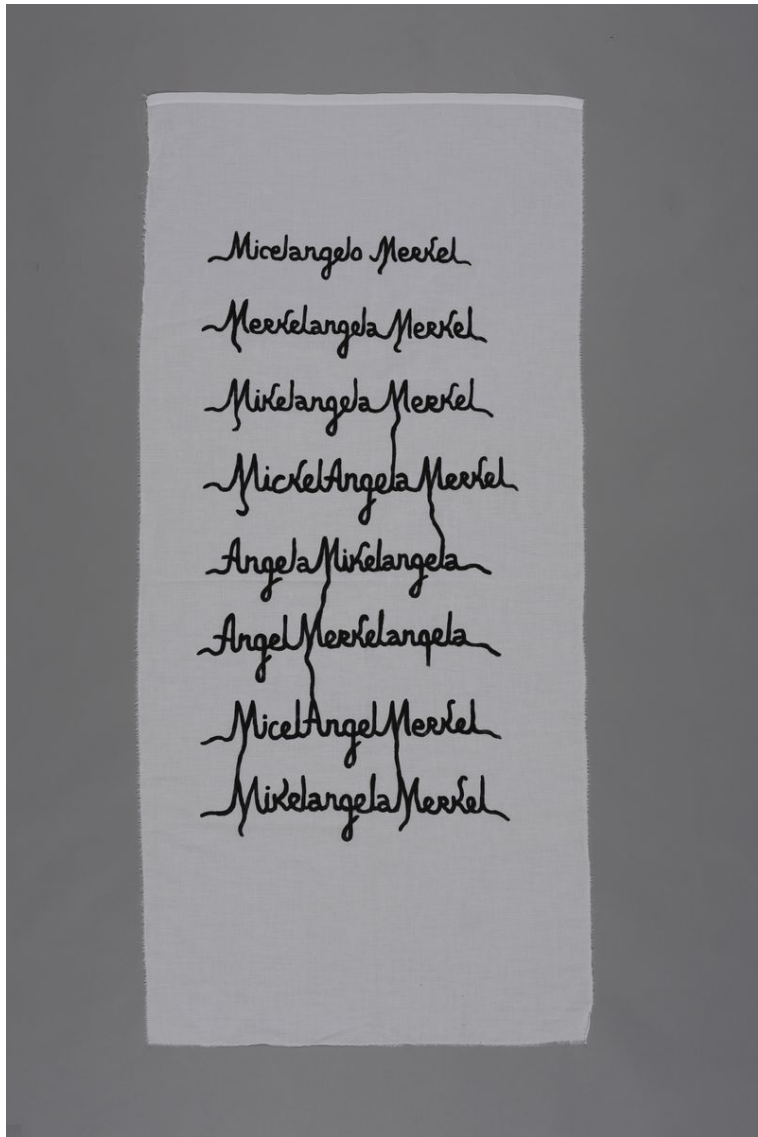 Micelangelo Merkel
Merkelangela Merkel
Mikelangela Merkel
MickelAngela Merkel
Angela Mikelangela
Angel Merkelangela
MicelAngel Merkel
Mikelangela Merkel